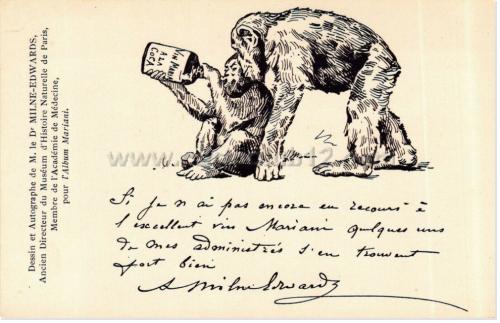 Dessin et Autographe de M. le Dr MILNE-EDWARDS,
Ancien Directeur du Muséum d'Histoire Naturelle de Paris,
Membre de l'Académie de Médecine,
pour l'Album Mariani.
VIN MARIANI
A LA
COCA
Si je n ai pas encore eu recours à
l'excellent vin Mariani quelques uns
de mes administrés s'en trouvent
fort bien
A Milne Edwards